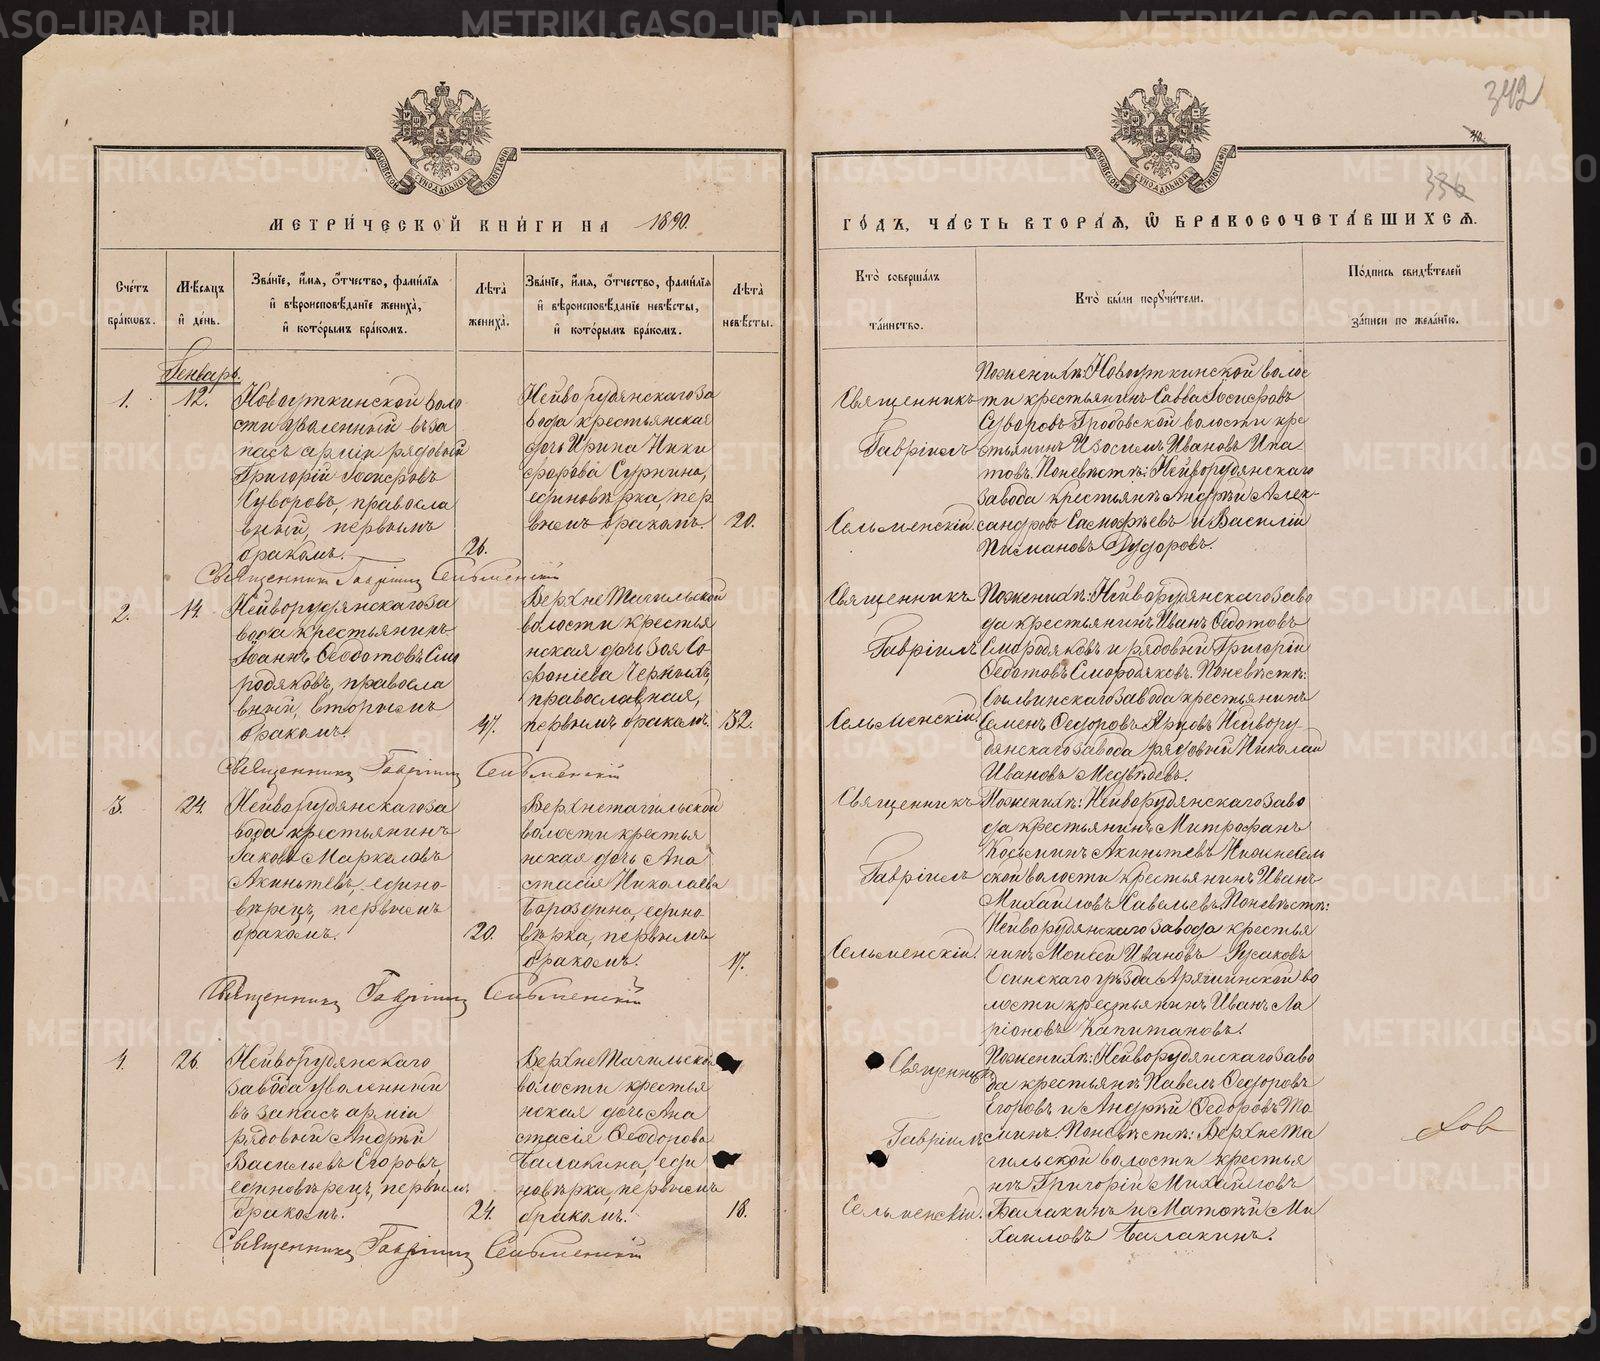 342
40.
336
МОСКОВСКОЙ СѴНОДАЛЬНОЙ ТИПОГРАФІИ
МОСКОВСКОЙ СѴНОДАЛЬНОЙ ТИПОГРАФІИ
МЕТРИ́ЧЕСКОЙ КНИ́ГИ НА 1890.
Сче́тъ бра́кωвъ.
Мѣ́сяцъ и҆ де́нь.
Зва́нїе, и҆́мя, ѻ҆́тчество, фами́лїя
и҆ вѣроисповѣ́данїе жениха̀,
и҆ кото́рымъ бра́комъ.
Лѣта̀ жениха̀.
Зва́нїе, и҆́мя, ѻ҆́тчество, фами́лїя
и҆ вѣроисповѣ́данїе невѣ́сты,
и҆ кото́рымъ бра́комъ.
Лѣта̀ невѣ́сты.
Генварь.
1.
12.
Новоуткинской воло
сти уволенный въ за
пасъ арміи рядовый
Григорій Іосифовъ
Суворовъ, правосла
вный, первымъ
бракомъ.
26.
Нейворудянскаго За
вода крестьянская
дочь Ирина Ники
форова Суркина,
единовѣрка, пер
вымъ бракомъ.
20.
Священникъ Гавріилъ Сельменскій
2.
14.
Нейворудянскаго За
вода крестьянинъ
Іоаннъ Ѳеодотовъ Смо
родяковъ, правосла
вный, вторымъ
бракомъ.
47.
ВерхнеТагильской
волости крестья
нская дочь Зоя Со
фоніева Черныхъ,
православная,
первымъ бракомъ.
32.
Священникъ Гавріилъ Сельменскій
3.
24.
Нейворудянскаго За
вода крестьянинъ
Іаковъ Маркеловъ
Акинѳіевъ, едино
вѣрецъ, первымъ
бракомъ.
20.
Верхнетагильской
волости крестья
нская дочь Ана
стасія Николаева
Бороздина, едино
вѣрка, первымъ
бракомъ.
17.
Священникъ Гавріилъ Сельменскій
4.
26.
Нейворудянскаго
Завода уволенный
въ запасъ арміи
рядовый Андрей
Васильевъ Егоровъ,
единовѣрецъ, первымъ
бракомъ.
24.
ВерхнеТагильской
волости крестья
нская дочь Ана
стасія Ѳеодорова
Балакина, еди
новѣрка, первымъ
бракомъ.
18.
Священникъ Гавріилъ Сельменскій
ГО́ДЪ, ЧА́СТЬ ВТОРА́Я, Ѽ БРАКОСОЧЕТА́ВШИХСЯ.
Кто̀ соверша́лъ та́инство.
Кто̀ бы́ли поручи́тели.
По́дпись свидѣ́телей
за́писи по жела́нїю.
Священникъ
Гавріилъ
Сельменскій.
По женихѣ: Новоуткинской волос
ти крестьянинъ Савва Іосифовъ
Суворовъ Гробовской волости кре
стьянинъ Изосимъ Ивановъ Ипа
товъ. По невѣстѣ: Нейворудянскаго
завода крестьянѣ Андрей Алек-
сандровъ и Василій
Дудоровъ.
Священникъ
Гавріилъ
Сельменскій.
По женихѣ: Нейворудянскаго Заво
да крестьянинъ Иванъ Ѳедотовъ
Смородяковъ и рядовый Григорій
Ѳедотовъ Смородяковъ. По невѣстѣ:
Сылвинскаго Завода крестьянинъ
Семенъ Ѳедоровъ Ярцовъ Нейвору
дянскаго завода рядовый Николай
Ивановъ Медвѣдевъ.
Священникъ
Гавріилъ
Сельменскій.
По женихѣ: Нейворудянскаго Заво
да крестьянинъ Митрофанъ
Косьминъ Акинѳіевъ
ской волости крестьянинъ Иванъ
Михайловъ Савельевъ. По невѣстѣ:
Нейворудянскаго Завода крестья
нинъ Моисей Ивановъ Русаковъ
Осинскаго уѣзда Аряжинской во
лости крестьянинъ Иванъ Ла
ріоновъ Капитановъ.
Священникъ
Гавріилъ
Сельменскій.
По женихѣ: Нейворудянскаго Заво
да крестьянѣ Павелъ Ѳедоровъ
Егоровъ и Андрей Ѳедоровъ То
минъ. По невѣстѣ: ВерхнеТа
гильской волости крестья
нѣ Григорій Михайловъ
Балакинъ и Матѳей Ми
хаиловъ Балакинъ.
METRIKI.GASO-URAL.RU